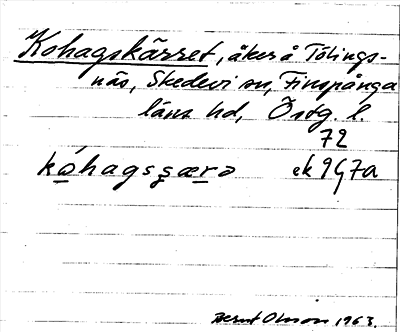 Kohagskärret, åker å Tölings-
näs, Skedevi sn, Finspånga
läns hd, Östg. l.
72
kóhagsşærə ek 9G7a
Bernt Olsson 1963.